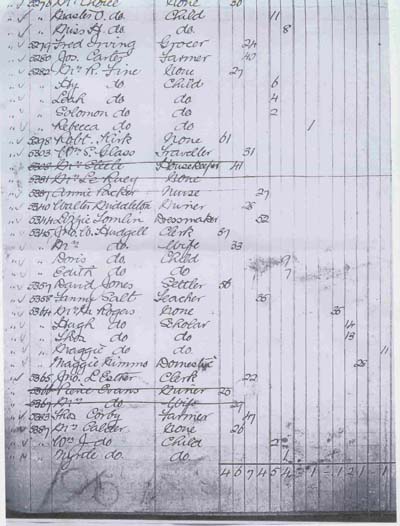 5276 Mrs Choice None 30
Master O. do. Child 11
Miss H. do. do. 8
5279 Fred Irving Grocer 24
5280 Jos. Carter Farmer 40
5282 Mrs R. Fine None 27
Hy do Child 6
Leah do do. 4
Solomon do do. 2
Rebecca do do. 1
5298 Robt. Kirk None 61
5303 Wm S. Glass Traveller 31
Mrs Steele Housekeeper 41
5331 Mrs None
5337 Annie Packer Nurse 27
5340 Walter Duddleston Miner 28
5344 Lizzie Tomlin Dressmaker 52
5345 Jno. O. Hudgell Clerk 37
Mrs do. Wife 33
Doris do. Child 9
Edith do do 7
5357 David Jones Settler 56
5358 Fanny Salt Teacher 35
5364 Mrs M. Rogers None 35
Hugh do Scholar 14
Thos do do 13
Maggie do do. 11
Maggie Dimmo Domestic 25
5365 Jno. L. Esther Clerk 22
Evans Miner 25
5367 Mrs do Wife 27
5383 Thos Corby Farmer 47
5387 Mrs Calder None 26
Wm J. do Child 2
Myrtle do. do. 1
4 6 7 4 5 4 - 1 - 1 2 1 - 1